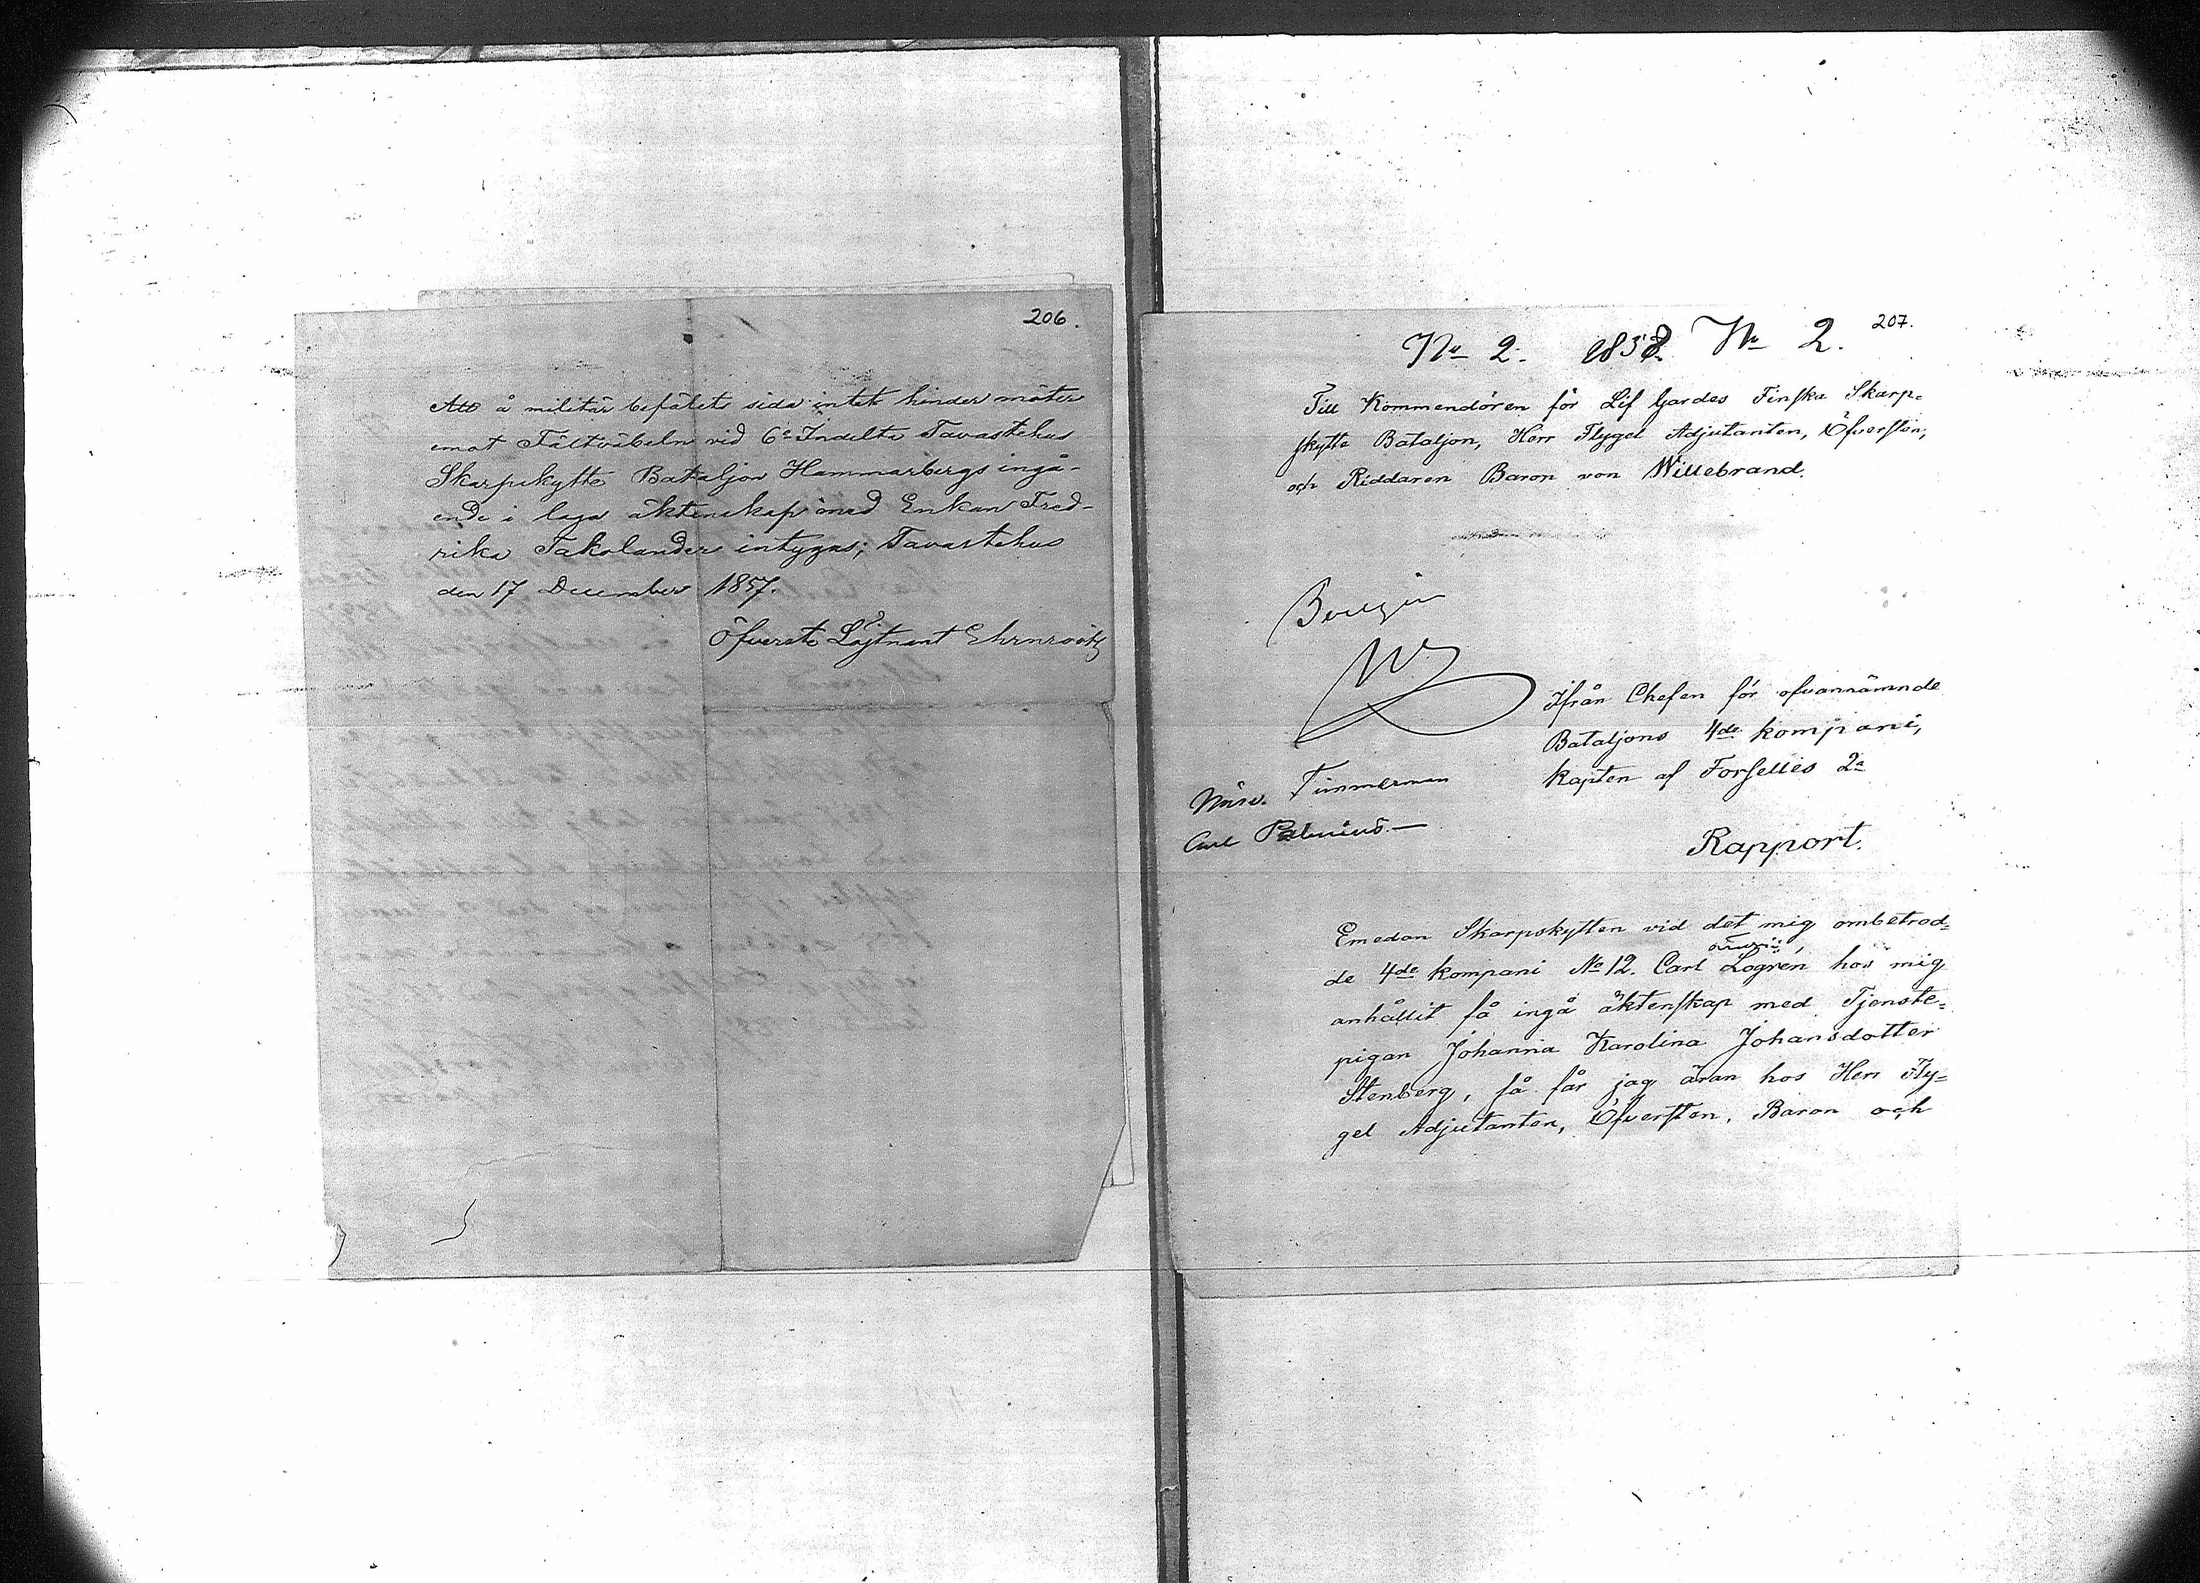 206.
Att å militär befälets sida intet hinder möter
emot Fältväbeln vid 6e Indelta Tavastehus
Skarpskytte Bataljon Hammarbergs ingå-
ende i laga äktenskap med Enkan Fred-
rika Takolander intygas; Tavastehus
den 17 December 1857.
Öfverste Löjtnant Ehrnrooth
207.
No 2. 1858. No 2.
Till Kommendören för Lif Gardes Finska Skarp-
skytte Bataljon, Herr Flygel Adjutanten, Öfversten,
och Riddaren Baron von Willebrand.
Ifrån Chefen för ofvannämnde
Bataljons 4de kompani,
Kapten af Forselles 2a
Timmerman
Carl Palmius.
Rapport.
Emedan Skarpskytten vid det mig ombetrod-
de 4de kompani No 12. Carl Logrén hos mig
anhållit få ingå äktenskap med Tjenste-
pigan Johanna Karolina Johansdotter
Stenberg, så får jag äran hos Herr Fly-
gel Adjutanten, Öfversten, Baron och